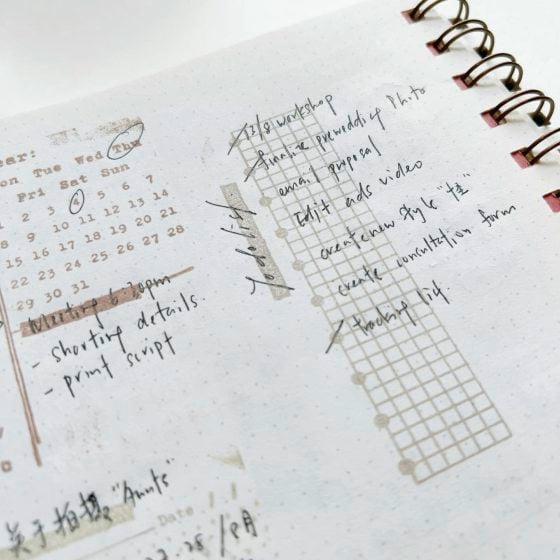 ear:
on Tue Wed Thu
Fri Sat Sun
1 2 3 4 5 6 7
8 9 10 11 12 13 14
15 16 17 18 19 20 21
22 23 24 25 26 27 28
29 30 31
Meeting 6:30pm
- shorting details.
- print script
13/8 workshop
finalize preweddieg Photo
email proposal
Edit ads video
create new style "挂"
create consultation form
tracking list
关于拍摄 "Aunts"
Date